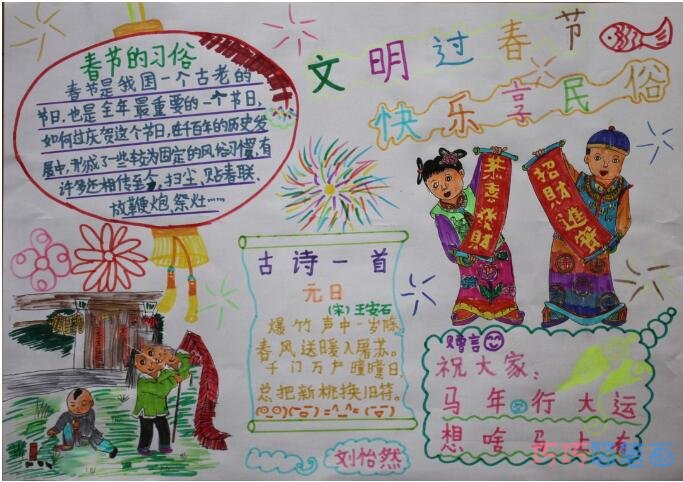 文明过春节
快乐享民俗
春节的习俗
春节是我国一个古老的
节日,也是全年最重要的一个节日,
如何过庆贺这个节日,在千百年的历史发
展中,形成了一些较为固定的风俗习惯,有
许多还相传至今,扫尘、贴春联、
放鞭炮、祭灶……
恭喜發財
招財進寶
古诗一首
元日
(宋)王安石
爆竹声中一岁除
春风送暖入屠苏。
千门万户曈曈日
总把新桃换旧符。
赠言
祝大家:
马年行大运
想啥马上有
刘怡然